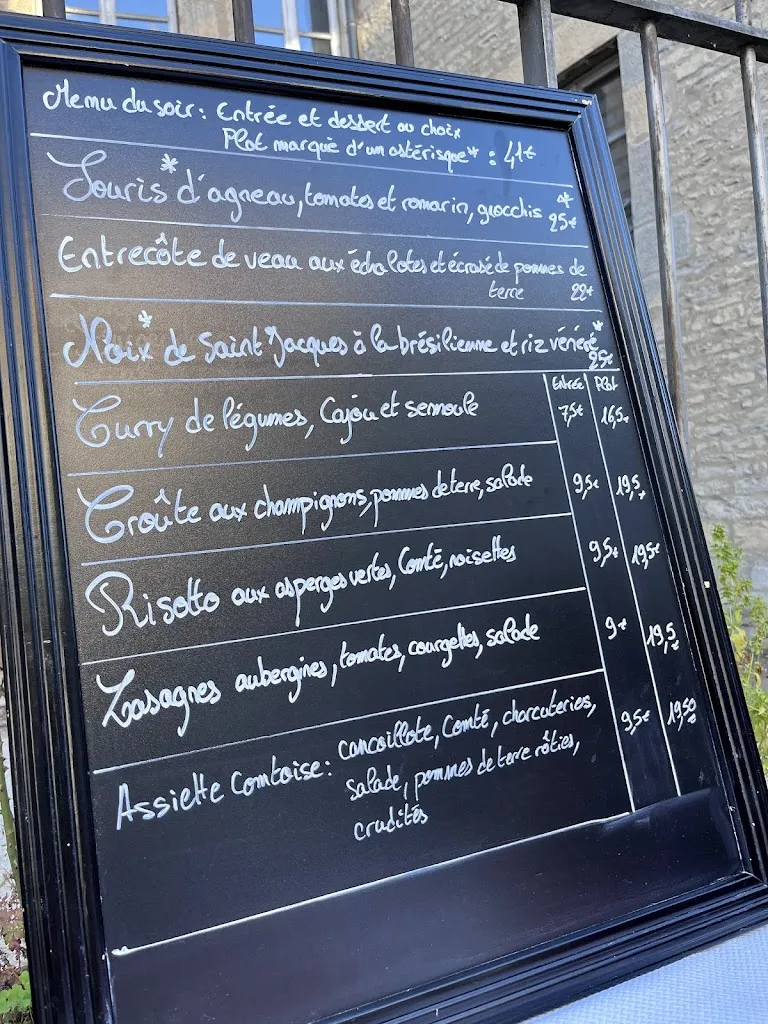 Menu du soir : Entrée et dessert au choix
Plat marqué d'un astérisque* : 41€
Souris* d'agneau, tomates et romarin, gnocchis *
25€
Entrecôte de veau aux échalotes et écrasé de pommes de
terre 22€
Noix* de Saint Jacques à la brésilienne et riz vénéré*
25€
Entrée Plat
Curry de légumes, Cajou et semoule 7,5€ 16,5€
Croûte aux champignons, pommes de terre, salade 9,5€ 19,5€
Risotto aux asperges vertes, Comté, noisettes 9,5€ 19,5€
Lasagnes aubergines, tomates, courgettes, salade 9€ 19,5€
Assiette Comtoise : cancoillote, Comté, charcuteries, 9,5€ 19,50€
salade, pommes de terre rôties,
crudités